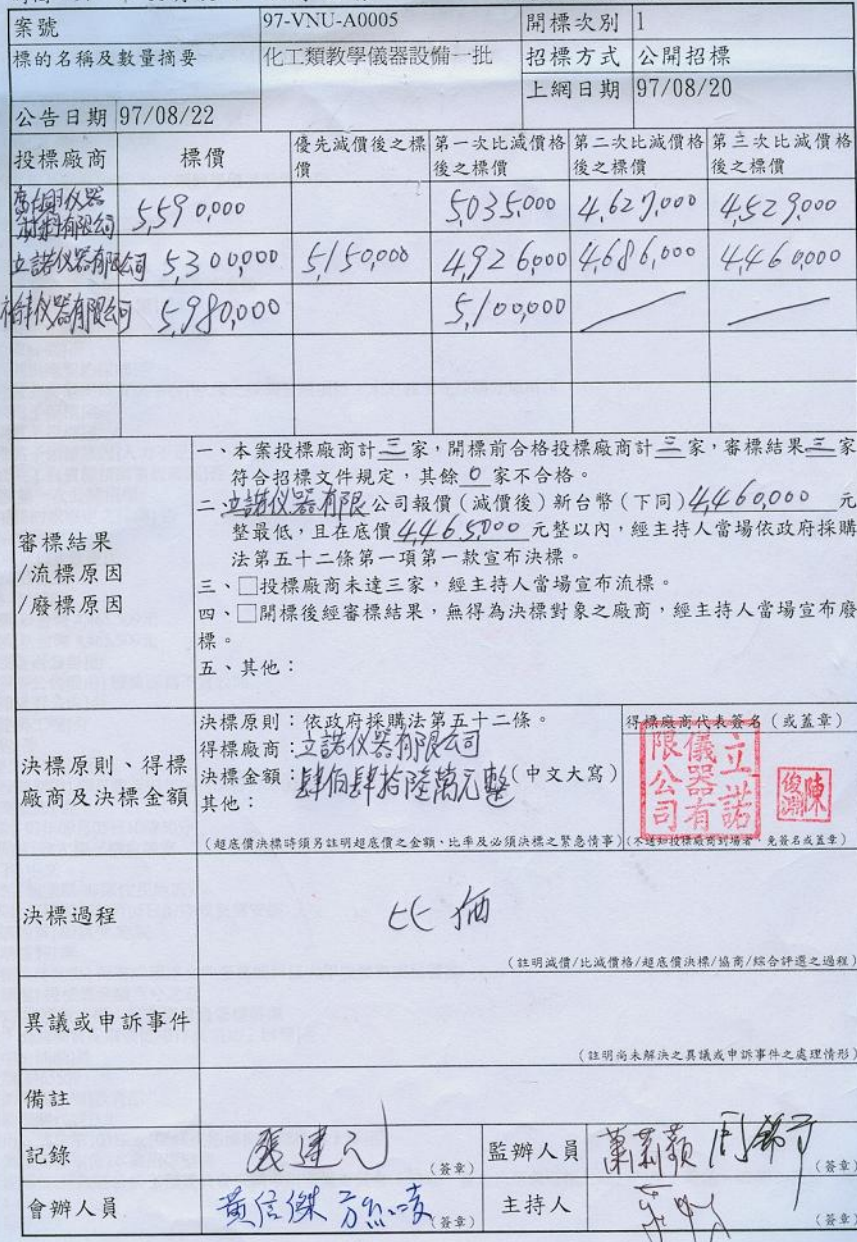 案號 97-VNU-A0005 開標次別 1
標的名稱及數量摘要 化工類教學儀器設備一批 招標方式 公開招標
上網日期 97/08/20
公告日期 97/08/22
投標廠商 標價 優先減價後之標價 第一次比減價格後之標價 第二次比減價格後之標價 第三次比減價格後之標價
仪器
有限公司 5,590,000 5,035,000 4,627,000 4,529,000
立諾仪器有限公司 5,300,000 5,150,000 4,926,000 4,686,000 4,460,000
仪器有限公司 5,980,000 5,100,000
審標結果
/流標原因
/廢標原因
一、本案投標廠商計三家，開標前合格投標廠商計三家，審標結果三家
符合招標文件規定，其餘0家不合格。
二、立諾仪器有限公司報價（減價後）新台幣（下同）4,460,000元
整最低，且在底價4,465,000元整以內，經主持人當場依政府採購
法第五十二條第一項第一款宣布決標。
三、□投標廠商未達三家，經主持人當場宣布流標。
四、□開標後經審標結果，無得為決標對象之廠商，經主持人當場宣布廢
標。
五、其他：
決標原則、得標
廠商及決標金額
決標原則：依政府採購法第五十二條。
得標廠商：立諾仪器有限公司
決標金額：肆佰肆拾陸萬元整（中文大寫）
其他：
（超底價決標時須另註明超底價之金額、比率及必須決標之緊急情事）
得標廠商代表簽名（或蓋章）
立諾
儀器有
限公司
陳俊淵
（不通知投標廠商到場者，免簽名或蓋章）
決標過程 比価
（註明減價/比減價格/超底價決標/協商/綜合評選之過程）
異議或申訴事件
（註明尚未解決之異議或申訴事件之處理情形）
備註
記錄 張建元（簽章） 監辦人員 蕭莉穎（簽章）
會辦人員 黃信傑（簽章） 主持人（簽章）